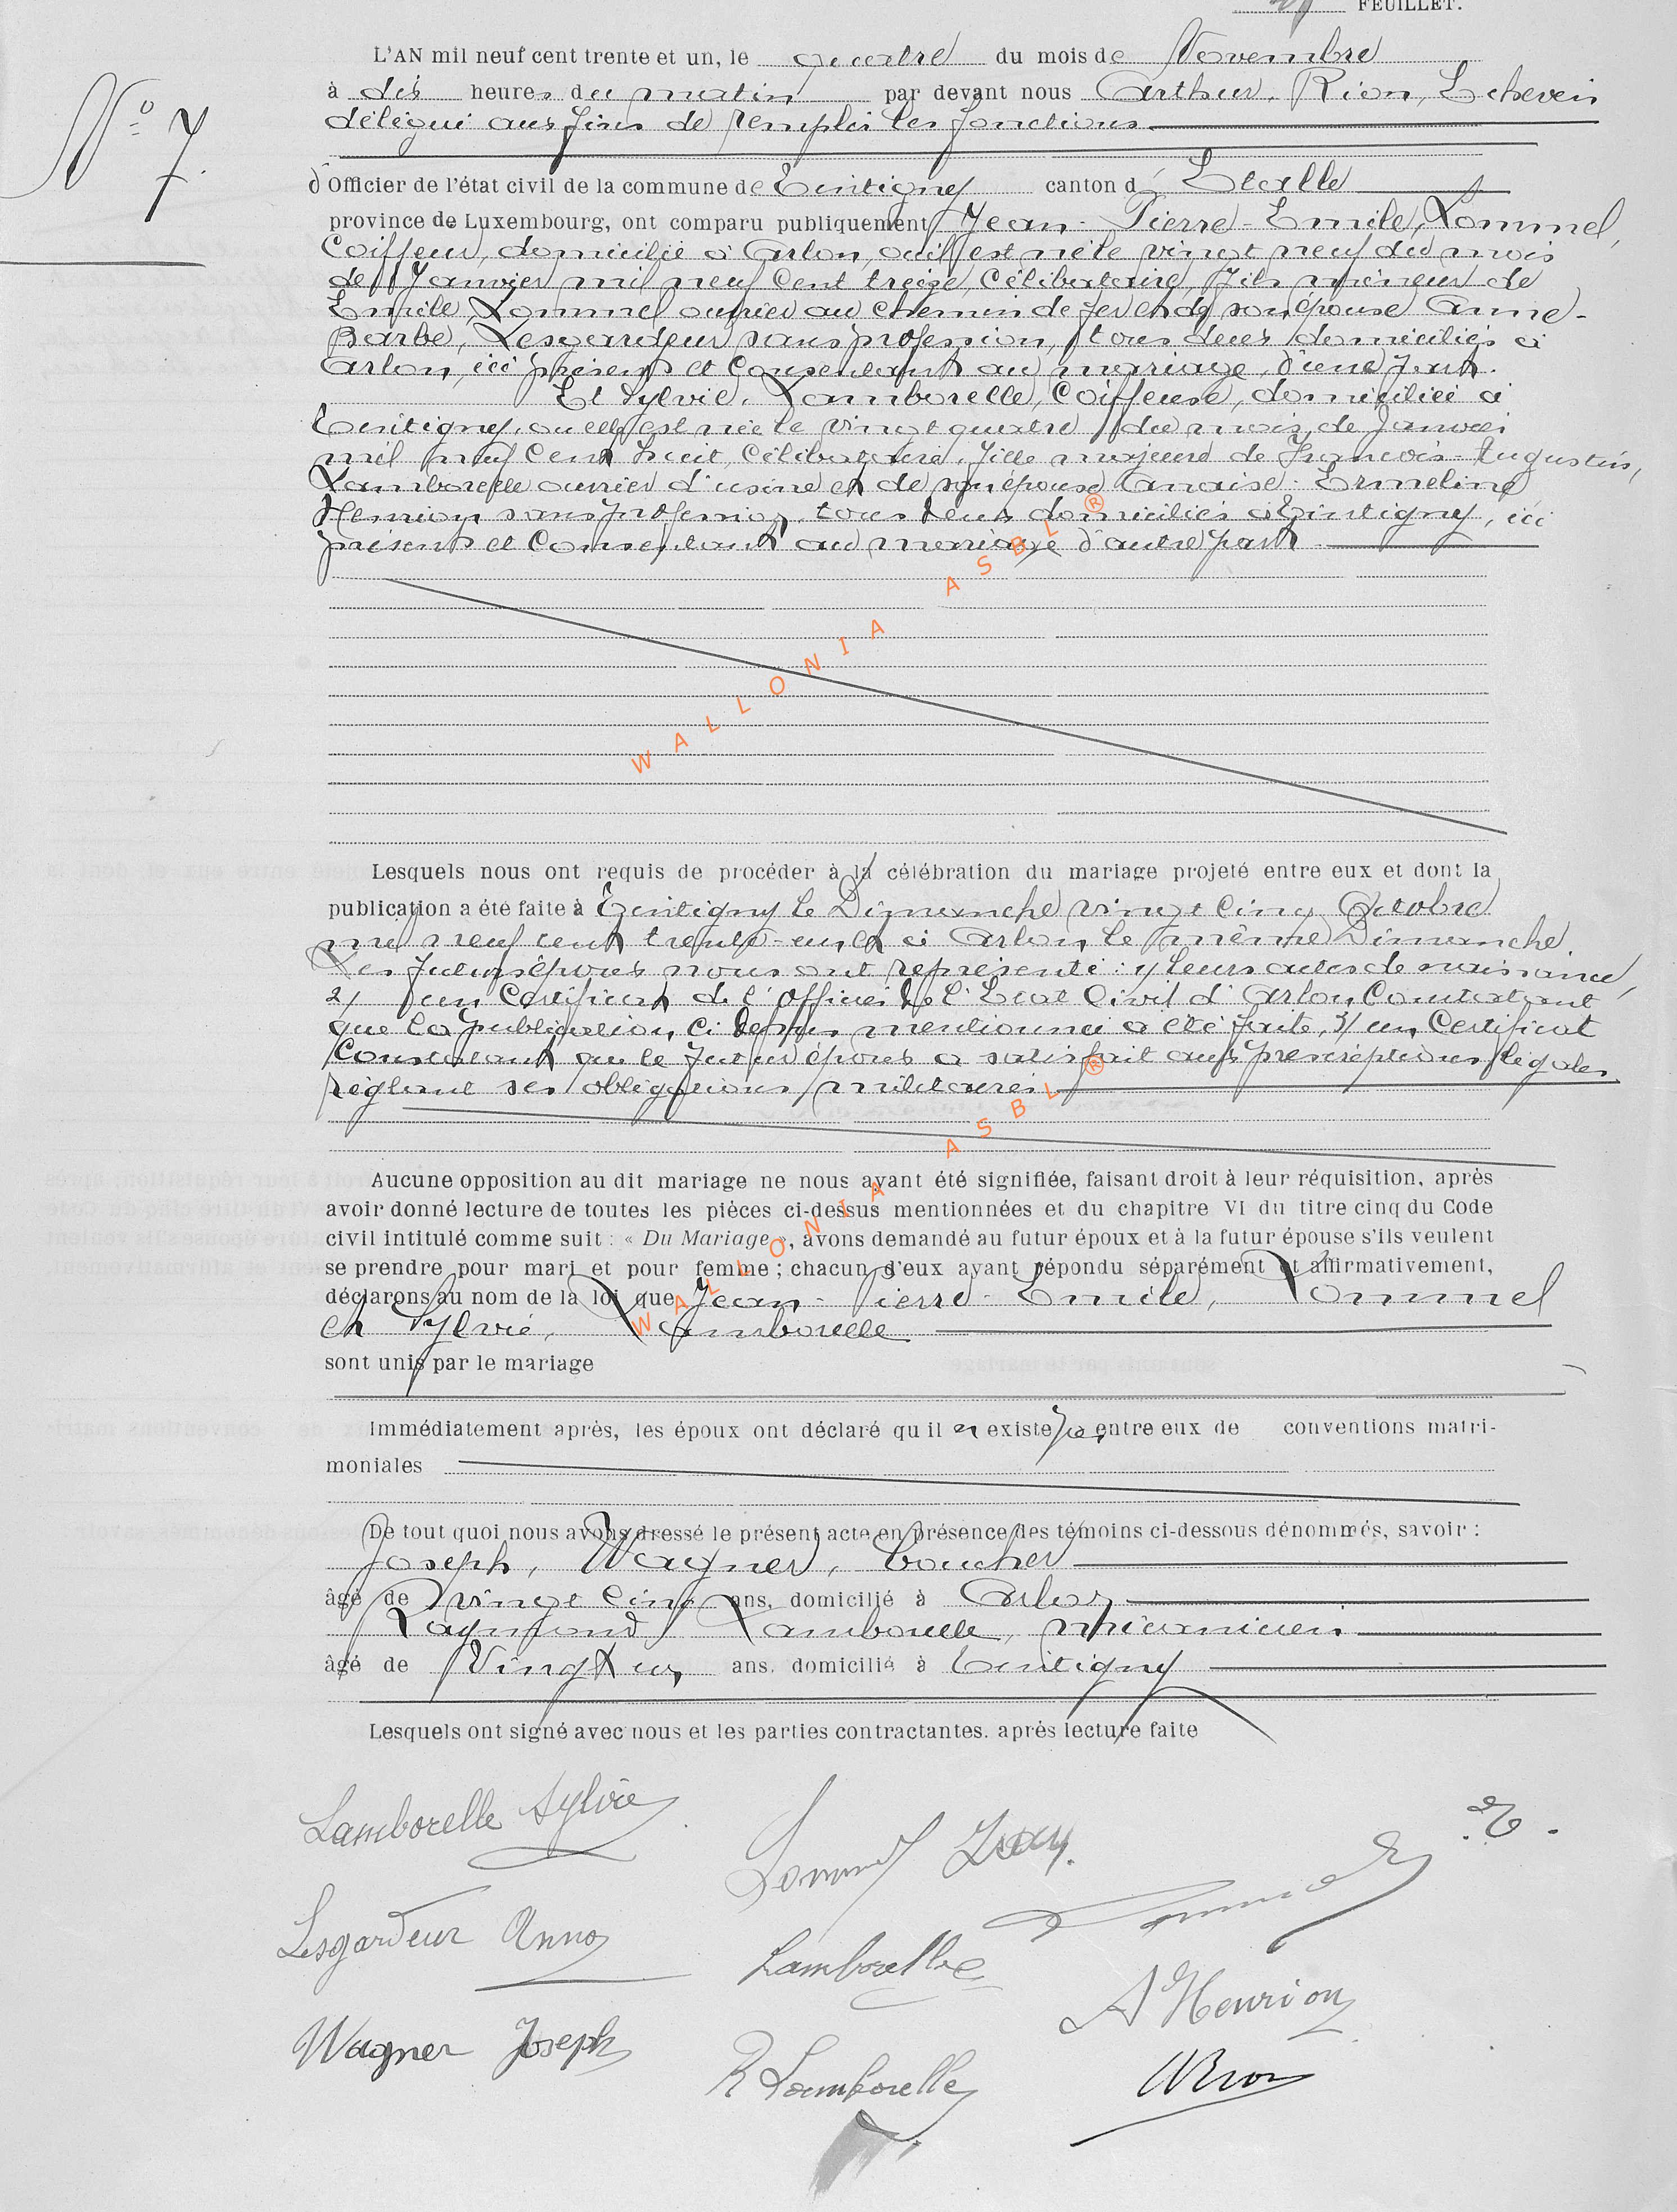 FEUILLET.
L'AN mil neuf cent trente et un, le quatre du mois de Novembre
N° 7.
à dix heures du matin par devant nous Arthur, Rion, Echevin
délégué aux fins de remplir les fonctions
d'Officier de l'état civil de la commune de Tintigny canton d'Etalle
province de Luxembourg, ont comparu publiquement Jean-Pierre-Emile, Lommel,
Coiffeur, domicilié à Arlon, où il est né le vingt neuf du mois
de Janvier mil neuf cent treize, Célibataire, fils mineur de
Emile, Lommel ouvrier au chemin de fer et de son épouse Anne-
Barbe, Lesgardeur sans profession, tous deux domiciliés à
Arlon, ici présents et consentant au mariage, d'une part.
Et Sylvie, Lamborelle, Coiffeuse, domiciliée à
Tintigny, où elle est née le vingt quatre du mois de Janvier
mil neuf cent huit, Célibataire, fille majeure de François-Augustin,
Lamborelle ouvrier d'usine et de son épouse Anaïse-Ermeline
Henrion sans profession, tous deux domiciliés à Tintigny, ici
présents et consentant au mariage d'autre part
WALLONIA ASBL ®
Lesquels nous ont requis de procéder à la célébration du mariage projeté entre eux et dont la
publication a été faite à Tintigny le Dimanche vingt cinq Octobre
mil neuf cent trente-un, et à Arlon le même Dimanche
Les futurs époux nous ont représenté : 1/ leurs actes de naissance,
2/ un Certificat de l'Officier de l'Etat Civil d'Arlon, Constatant
que la publication ci dessus mentionnée a été faite, 3/ un Certificat
Constatant que le futur époux a satisfait aux prescriptions légales
réglant ses obligations militaires
Aucune opposition au dit mariage ne nous ayant été signifiée, faisant droit à leur réquisition, après
avoir donné lecture de toutes les pièces ci-dessus mentionnées et du chapitre VI du titre cinq du Code
civil intitulé comme suit : « Du Mariage », avons demandé au futur époux et à la futur épouse s'ils veulent
se prendre pour mari et pour femme ; chacun d'eux ayant répondu séparément et affirmativement,
déclarons au nom de la loi que Jean-Pierre-Emile, Lommel
et Sylvie, Lamborelle
WALLONIA ASBL ®
sont unis par le mariage
Immédiatement après, les époux ont déclaré qu'il n'existe pas entre eux de conventions matri-
moniales
De tout quoi nous avons dressé le présent acte en présence des témoins ci-dessous dénommés, savoir :
Joseph, Wagner, boucher
âgé de vingt cinq ans, domicilié à Arlon
Raymond Lamborelle, mécanicien
âgé de Vingt un ans, domicilié à Tintigny
Lesquels ont signé avec nous et les parties contractantes, après lecture faite
Lamborelle Sylvie
Lesgardeur Anna
Lamborelle
A Henrion
Wagner Joseph
R Lamborelle
ARion